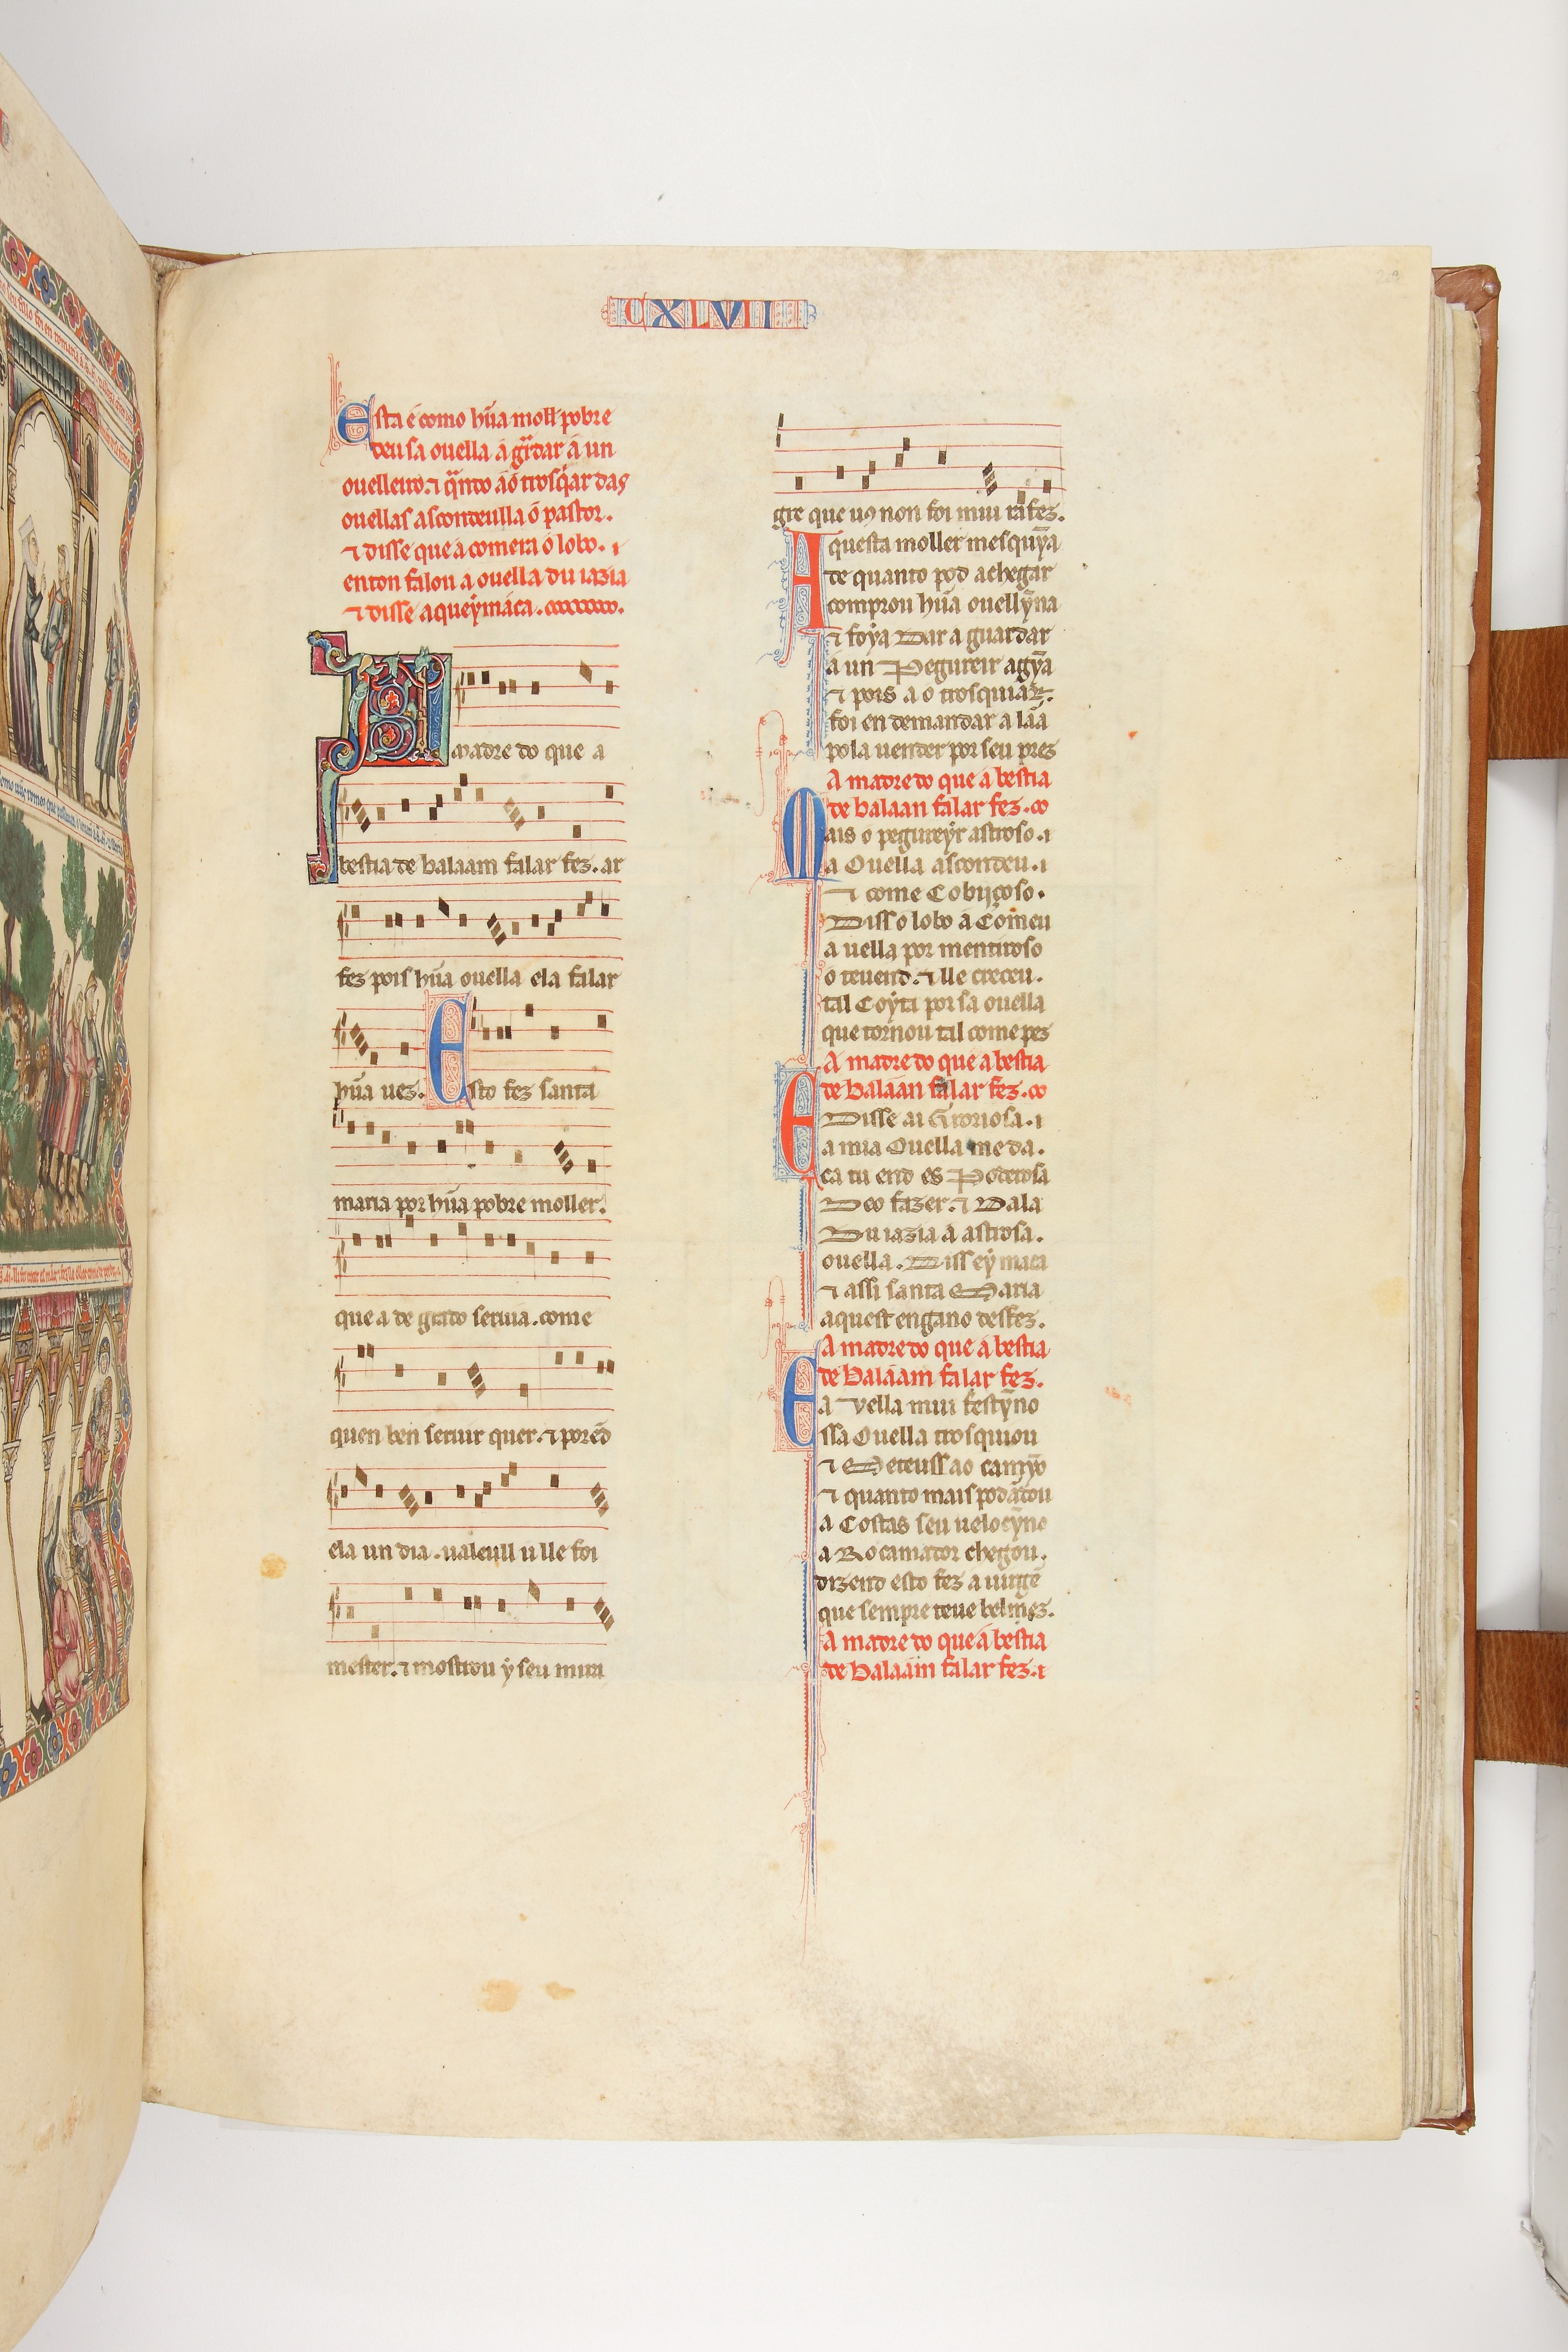 CXLVII
Esta é como hũa moll pobre
deu sa ouella á gr̃dar á un
ouelleiro. ⁊ q̃ndo áó trosq̃ar das
ouellas ascondeulla ó pastor.
⁊ disse que á comera ó lobo. ⁊
enton falou a ouella du iazia
⁊ disse aqueýmáca.
A madre do que a
bestia de balaam falar fez. ar
fez pois hũa ouella ela falar
hũa uez. Esto fez santa
maria por hũa pobre moller.
que a de grado seruia. come
quen ben seruir quer. ⁊ porẽd
ela un dia. ualeull u lle foi
mester. ⁊ mostrou ý seu mira
gre que uꝯ non foi mui rafez.
Aquesta moller mesquỹa
de quanto pod achegar
comprou hũa ouellỹna
⁊ foýa Dar a guardar
á un Pegureir agỹa
⁊ pois a o trosquiar.
foi en demandar a láá
pola uender por seu prez
A madre do que á bestia
de balaan falar fez.
Mais o pegureýr astroso. ⁊
a Ouella ascondeu. ⁊
⁊ come Cobijçoso.
Diss o lobo á Comeu
a uella por mentiroso
o teuend. ⁊ lle creceu.
tal Coýta por sa ouella
que tornou tal come pez
A madre do que a bestia
de balaan falar fez.
E Disse ai Groriosa. ⁊
a mia Ouella me da.
ca tu end es Poderosa
Deo fazer. ⁊ Dala
Du iazia á astrosa.
ouella. Diss eý maca
⁊ assi santa Maria
aquest engano desfez.
A madre do que á bestia
de balaam falar fez.
E a Vella mui festỹno
ssa Ouella trosquiou
⁊ Meteuss ao camỹo
⁊ quanto mais pod ãdou
a Costas seu uelocỹno
a Rocamador chegou.
dizend esto fez a uirgẽ
que sempre teue belmez.
A madre do que á bestia
de balaam falar fez. ⁊